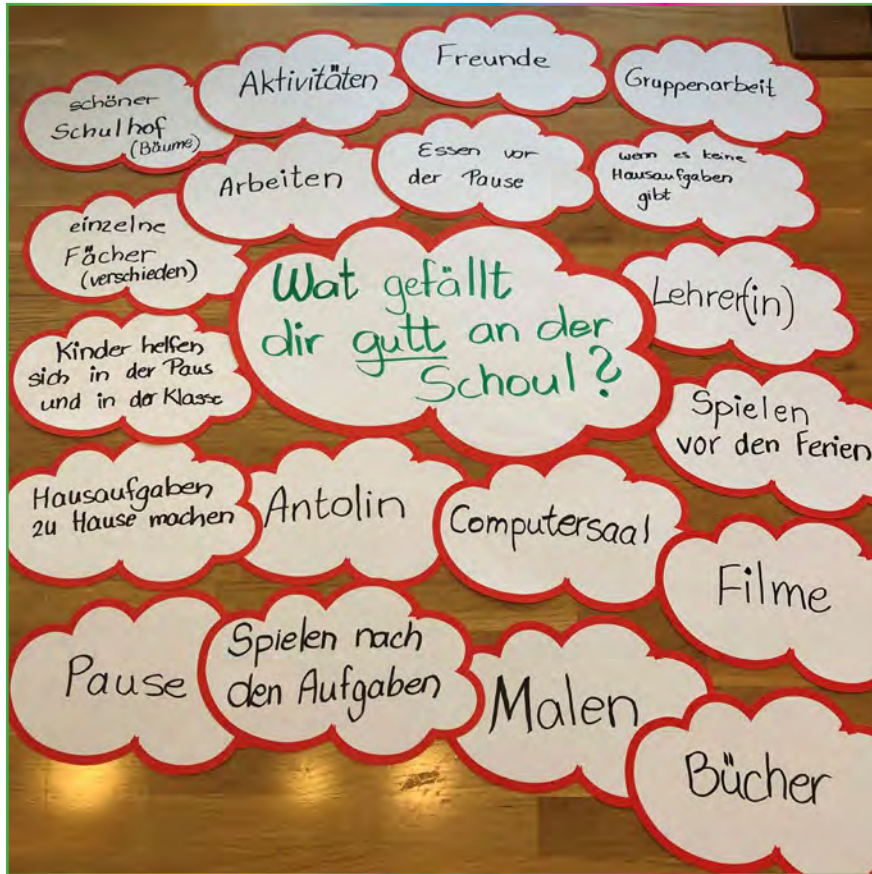 schöner
Schulhof
(Bäume)
Aktivitäten
Freunde
Gruppenarbeit
Arbeiten
Essen vor
der Pause
wenn es keine
Hausaufgaben
gibt
einzelne
Fächer
(verschieden)
Wat gefällt
dir gutt an der
Schoul?
Lehrer(in)
Kinder helfen
sich in der Paus
und in der Klasse
Spielen
vor den Ferien
Hausaufgaben
zu Hause machen
Antolin
Computersaal
Filme
Pause
Spielen nach
den Aufgaben
Malen
Bücher